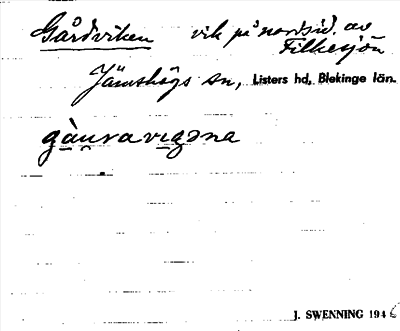 Gårdviken vik på nordsid. av
Filkesjön
Jämshögs sn, Listers hd, Blekinge län.
gàu̯ravıgəna
J. SWENNING 1946